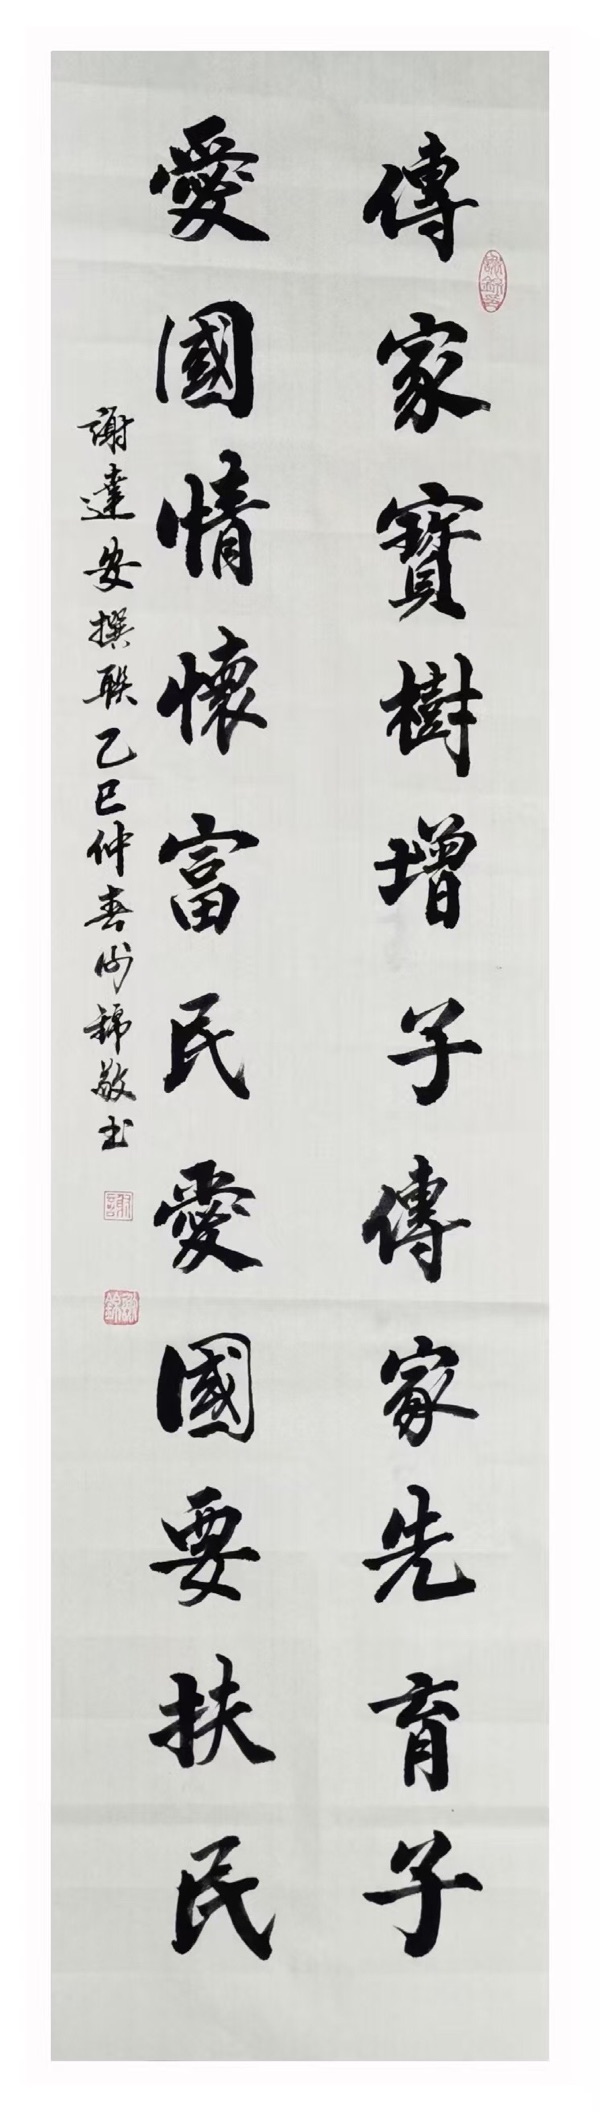 傳家寶樹增子傳家先育子
愛國情懷富民愛國要扶民
謝達安撰聯乙巳仲春謝錦敬书